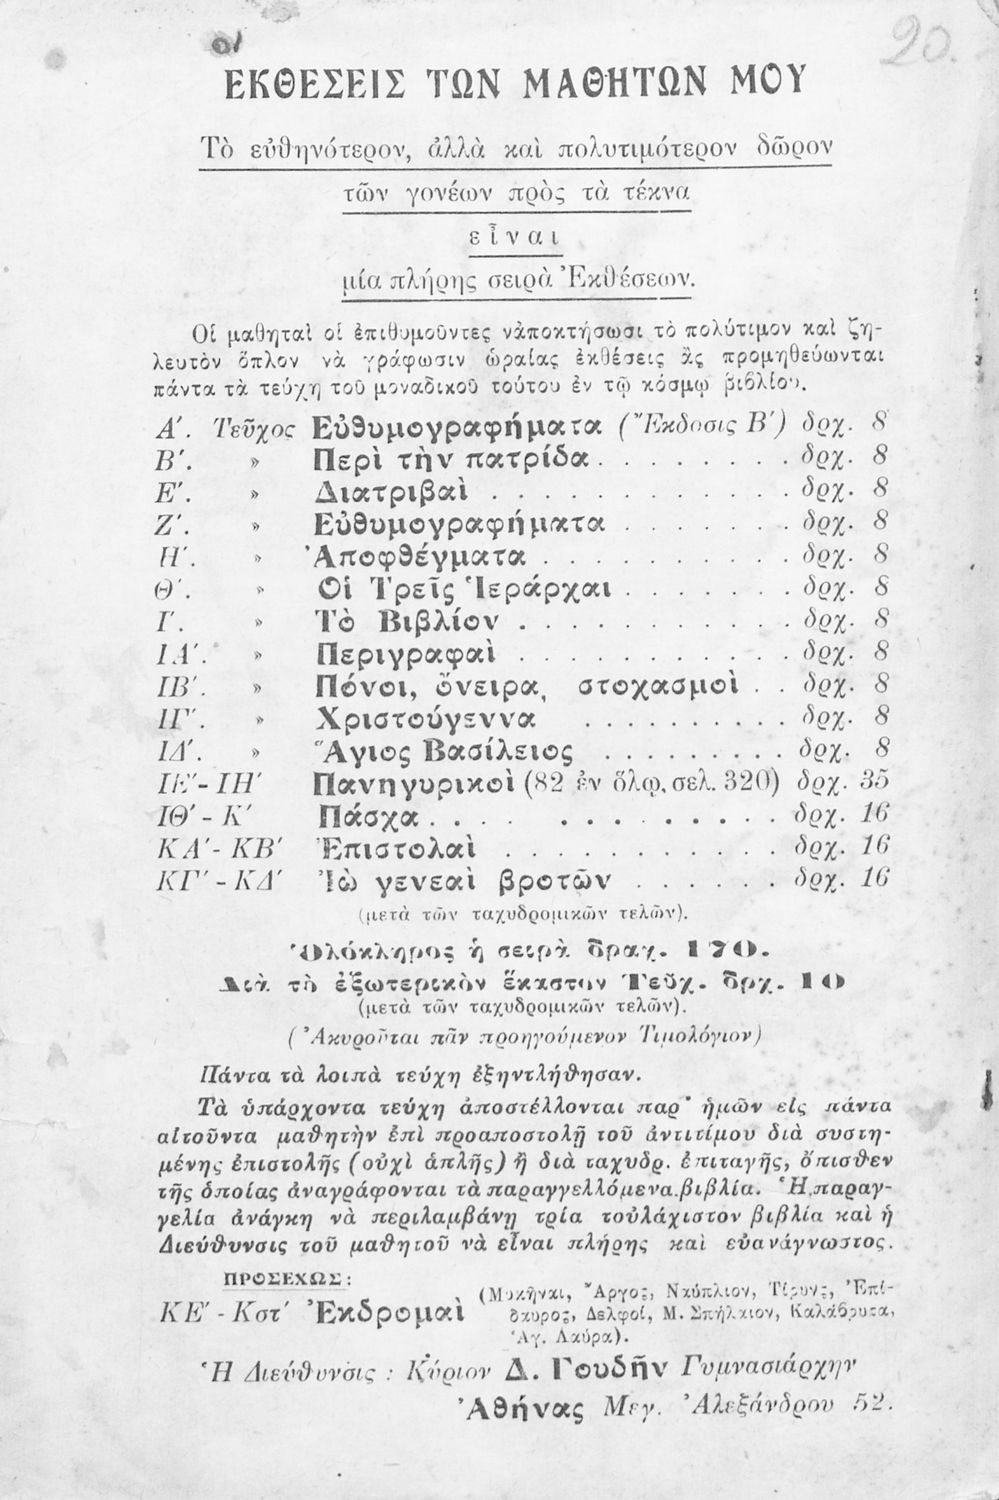 20.
ΕΚΘΕΣΕΙΣ ΤΩΝ ΜΑΘΗΤΩΝ ΜΟΥ
Τὸ εὐθηνότερον, ἀλλὰ καὶ πολυτιμότερον δῶρον
τῶν γονέων πρὸς τὰ τέκνα
εἶναι
μία πλήρης σειρὰ Ἐκθέσεων.
Οἱ μαθηταὶ οἱ ἐπιθυμοῦντες νἀποκτήσωσι τὸ πολύτιμον καὶ ζη-
λευτὸν ὅπλον νὰ γράφωσιν ὡραίας ἐκθέσεις ἂς προμηθεύωνται
πάντα τὰ τεύχη τοῦ μοναδικοῦ τούτου ἐν τῷ κόσμῳ βιβλίου.
Α΄. Τεῦχος Εὐθυμογραφήματα (Ἔκδοσις Β΄) δρχ. 8
Β΄. » Περὶ τὴν πατρίδα . . . . . . . δρχ. 8
Ε΄. » Διατριβαὶ . . . . . . . . . . δρχ. 8
Ζ΄. » Εὐθυμογραφήματα . . . . . . δρχ. 8
Η΄. » Ἀποφθέγματα . . . . . . . . . δρχ. 8
Θ΄. » Οἱ Τρεῖς Ἱεράρχαι . . . . . . δρχ. 8
Ι΄. » Τὸ Βιβλίον . . . . . . . . . . δρχ. 8
ΙΑ΄. » Περιγραφαὶ . . . . . . . . . . δρχ. 8
ΙΒ΄. » Πόνοι, ὄνειρα, στοχασμοὶ . . δρχ. 8
ΙΓ΄. » Χριστούγεννα . . . . . . . . δρχ. 8
ΙΔ΄. » Ἅγιος Βασίλειος . . . . . . . δρχ. 8
ΙΕ΄ - ΙΗ΄ Πανηγυρικοὶ (82 ἐν ὅλῳ, σελ. 320) δρχ. 35
ΙΘ΄ - Κ΄ Πάσχα . . . . . . . . . . . . δρχ. 16
ΚΑ΄ - ΚΒ΄ Ἐπιστολαὶ . . . . . . . . . . δρχ. 16
ΚΓ΄ - ΚΔ΄ Ἰὼ γενεαὶ βροτῶν . . . . . . δρχ. 16
(μετὰ τῶν ταχυδρομικῶν τελῶν).
Ὁλόκληρος ἡ σειρὰ δραχ. 170.
Διὰ τὸ ἐξωτερικὸν ἕκαστον Τεῦχ. δρχ. 10
(μετὰ τῶν ταχυδρομικῶν τελῶν).
(Ἀκυροῦται πᾶν προηγούμενον Τιμολόγιον)
Πάντα τὰ λοιπὰ τεύχη ἐξηντλήθησαν.
Τὰ ὑπάρχοντα τεύχη ἀποστέλλονται παρ᾽ ἡμῶν εἰς πάντα
αἰτοῦντα μαθητὴν ἐπὶ προαποστολῇ τοῦ ἀντιτίμου διὰ συστη-
μένης ἐπιστολῆς (οὐχὶ ἁπλῆς) ἢ διὰ ταχυδρ. ἐπιταγῆς, ὄπισθεν
τῆς ὁποίας ἀναγράφονται τὰ παραγγελλόμενα βιβλία. Ἡ παραγ-
γελία ἀνάγκη νὰ περιλαμβάνῃ τρία τοὐλάχιστον βιβλία καὶ ἡ
Διεύθυνσις τοῦ μαθητοῦ νὰ εἶναι πλήρης καὶ εὐανάγνωστος.
ΠΡΟΣΕΧΩΣ:
ΚΕ΄ - Κστ΄ Ἐκδρομαὶ (Μυκῆναι, Ἄργος, Ναύπλιον, Τίρυνς, Ἐπί-
δαυρος, Δελφοί, Μ. Σπήλαιον, Καλάβρυτα,
Ἁγ. Λαύρα).
Ἡ Διεύθυνσις : Κύριον Δ. Γουδῆν Γυμνασιάρχην
Ἀθήνας Μεγ. Ἀλεξάνδρου 52.